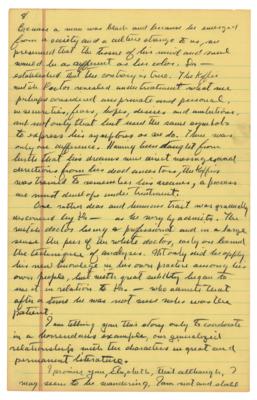 8
Because a man was black and because he emerged
from a society and a culture strange to us, we
presumed that the tissue of his mind and soul
would be as different as his color. Dr —
established that the contrary is true. The Kaffir
witch doctor revealed under treatment what we
perhaps considered our private and personal,
insecurities, fears, hopes, desires, and ambitions,
and not only that but used the same symbols
to express his symptoms as we do. There was
only one difference. Having been taught from
birth that his dreams were direct messages and
directions from his dead ancestors, the Kaffir
was trained to remember his dreams, a process
we must develop under treatment.
One rather dear and humorous trait was gradually
discerned by Dr — as he wryly admits. The
witch doctor being a professional and in a large
sense the peer of the white doctor, early on learned
the techniques of analysis. Not only did he apply
his new knowledge in his own practice among his
own people, but with great subtlety began to
use it in relation to Dr — who admits that
after a time he was not sure who was the
patient.
I am telling you this story only to corroborate
in a horrendous example, our
relationship with the characters in great and
permanent literature.
I promise you, Elizabeth, that although, I
may seem to be wandering, I am not and shall